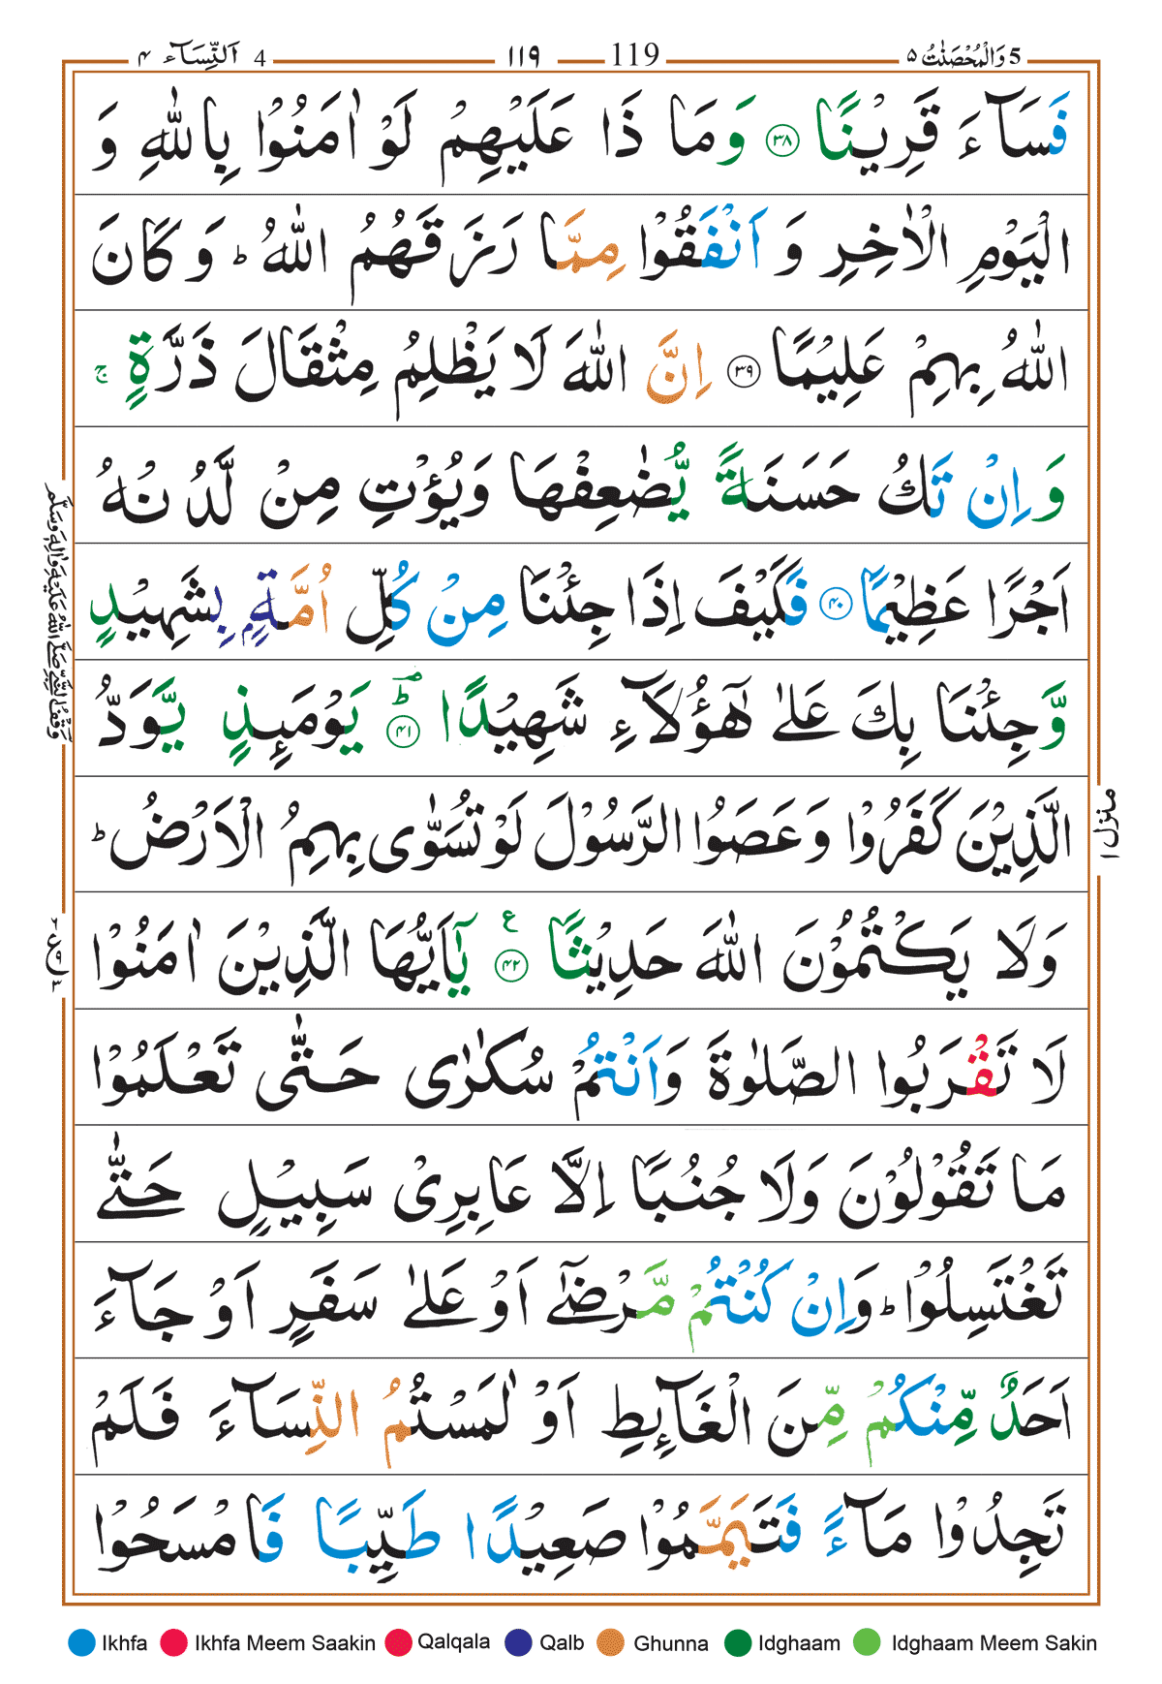 5 وَالْمُحْصَنٰتُ ۵ 119 ۱۱۹ 4 اَلنِّسَآء ۴
فَسَآءَ قَرِيْنًا ۳۸ وَمَا ذَا عَلَيْهِمْ لَوْ اٰمَنُوْا بِاللّٰهِ وَ
الْيَوْمِ الْاٰخِرِ وَ اَنْفَقُوْا مِمَّا رَزَقَهُمُ اللّٰهُ ؕ وَ كَانَ
اللّٰهُ بِهِمْ عَلِيْمًا ۳۹ اِنَّ اللّٰهَ لَا يَظْلِمُ مِثْقَالَ ذَرَّةٍ ۚ
وَ اِنْ تَكُ حَسَنَةً يُّضٰعِفْهَا وَيُؤْتِ مِنْ لَّدُنْهُ
اَجْرًا عَظِيْمًا ۴۰ فَكَيْفَ اِذَا جِئْنَا مِنْ كُلِّ اُمَّةٍۭ بِشَهِيْدٍ
وَّجِئْنَا بِكَ عَلٰى هٰٓؤُلَآءِ شَهِيْدًا ؕ ۴۱ يَوْمَئِذٍ يَّوَدُّ
الَّذِيْنَ كَفَرُوْا وَعَصَوُا الرَّسُوْلَ لَوْ تُسَوّٰى بِهِمُ الْاَرْضُ ؕ
وَلَا يَكْتُمُوْنَ اللّٰهَ حَدِيْثًا ع ۴۲ يٰٓاَيُّهَا الَّذِيْنَ اٰمَنُوْا
لَا تَقْرَبُوا الصَّلٰوةَ وَاَنْتُمْ سُكٰرٰى حَتّٰى تَعْلَمُوْا
مَا تَقُوْلُوْنَ وَلَا جُنُبًا اِلَّا عَابِرِىْ سَبِيْلٍ حَتّٰى
تَغْتَسِلُوْا ؕ وَاِنْ كُنْتُمْ مَّرْضٰٓى اَوْ عَلٰى سَفَرٍ اَوْ جَآءَ
اَحَدٌ مِّنْكُمْ مِّنَ الْغَآئِطِ اَوْ لٰمَسْتُمُ النِّسَآءَ فَلَمْ
تَجِدُوْا مَآءً فَتَيَمَّمُوْا صَعِيْدًا طَيِّبًا فَامْسَحُوْا
وَقْفُ النَّبِيِّ صَلَّى اللّٰهُ عَلَيْهِ وَاٰلِهٖ وَسَلَّم
منزل ۱
Ikhfa Ikhfa Meem Saakin Qalqala Qalb Ghunna Idghaam Idghaam Meem Sakin